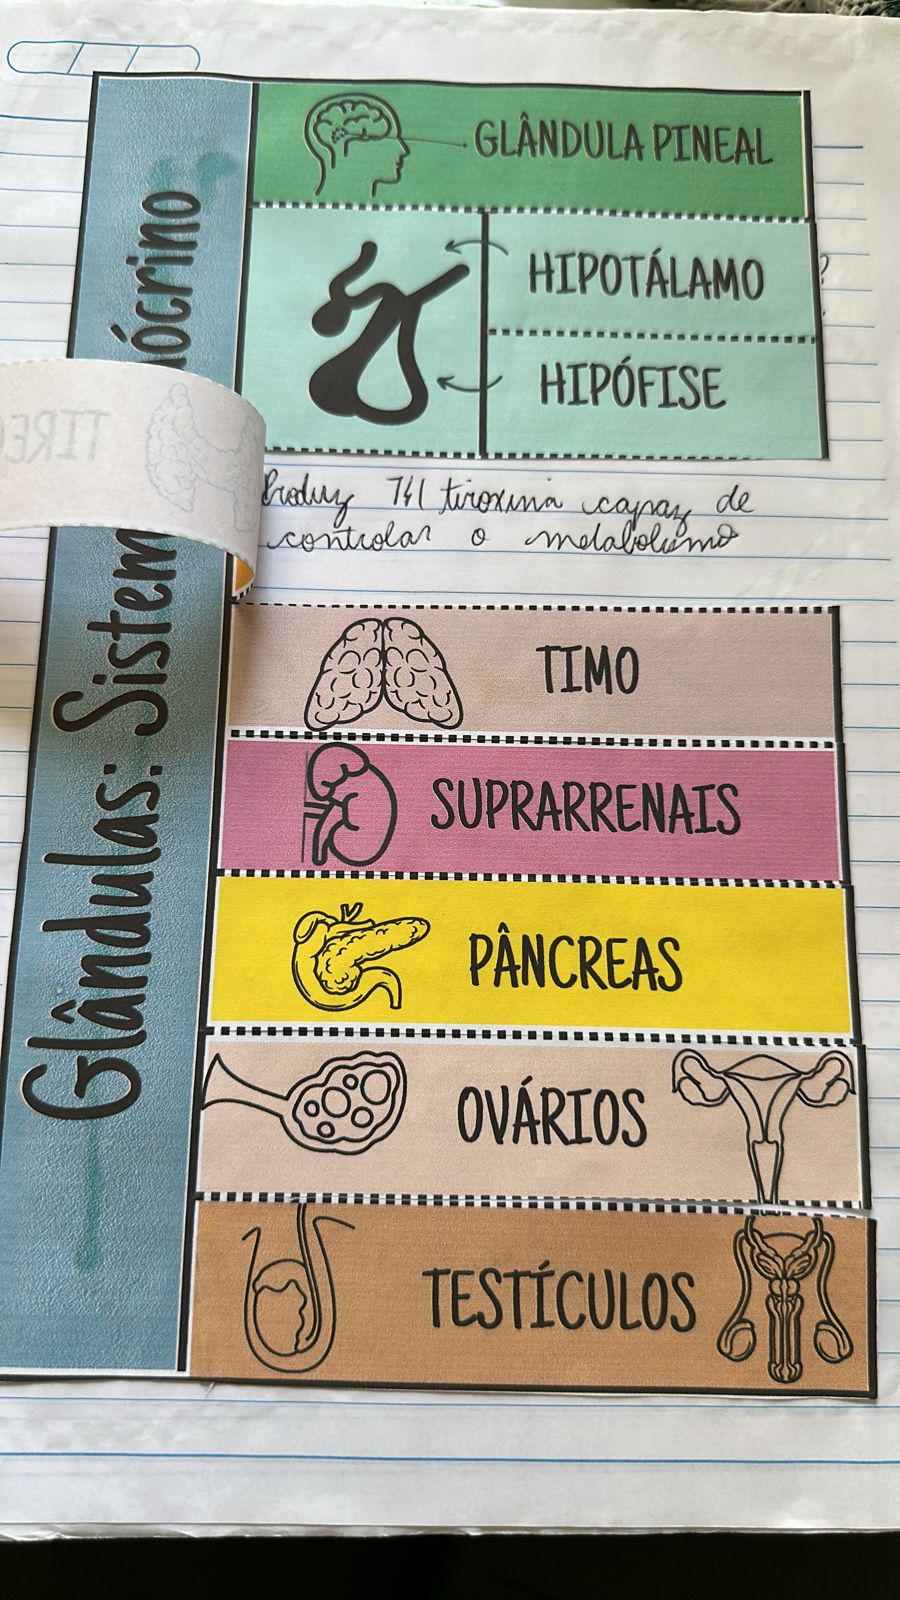 GLÂNDULA PINEAL
HIPOTÁLAMO
HIPÓFISE
Produz T4 tiroxina capaz de
controlar o metabolismo
TIMO
SUPRARRENAIS
PÂNCREAS
OVÁRIOS
TESTÍCULOS
Glândulas: Sistem
ócrino
TIREO